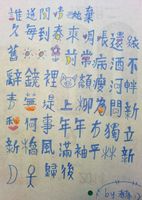 誰道閒情拋棄
久每到春來惆悵還
舊前常病酒不
辭鏡裡顏瘦河畔
青蕪堤上柳為問新
何事年年有獨立
橋風滿袖平林新
歸後
(by